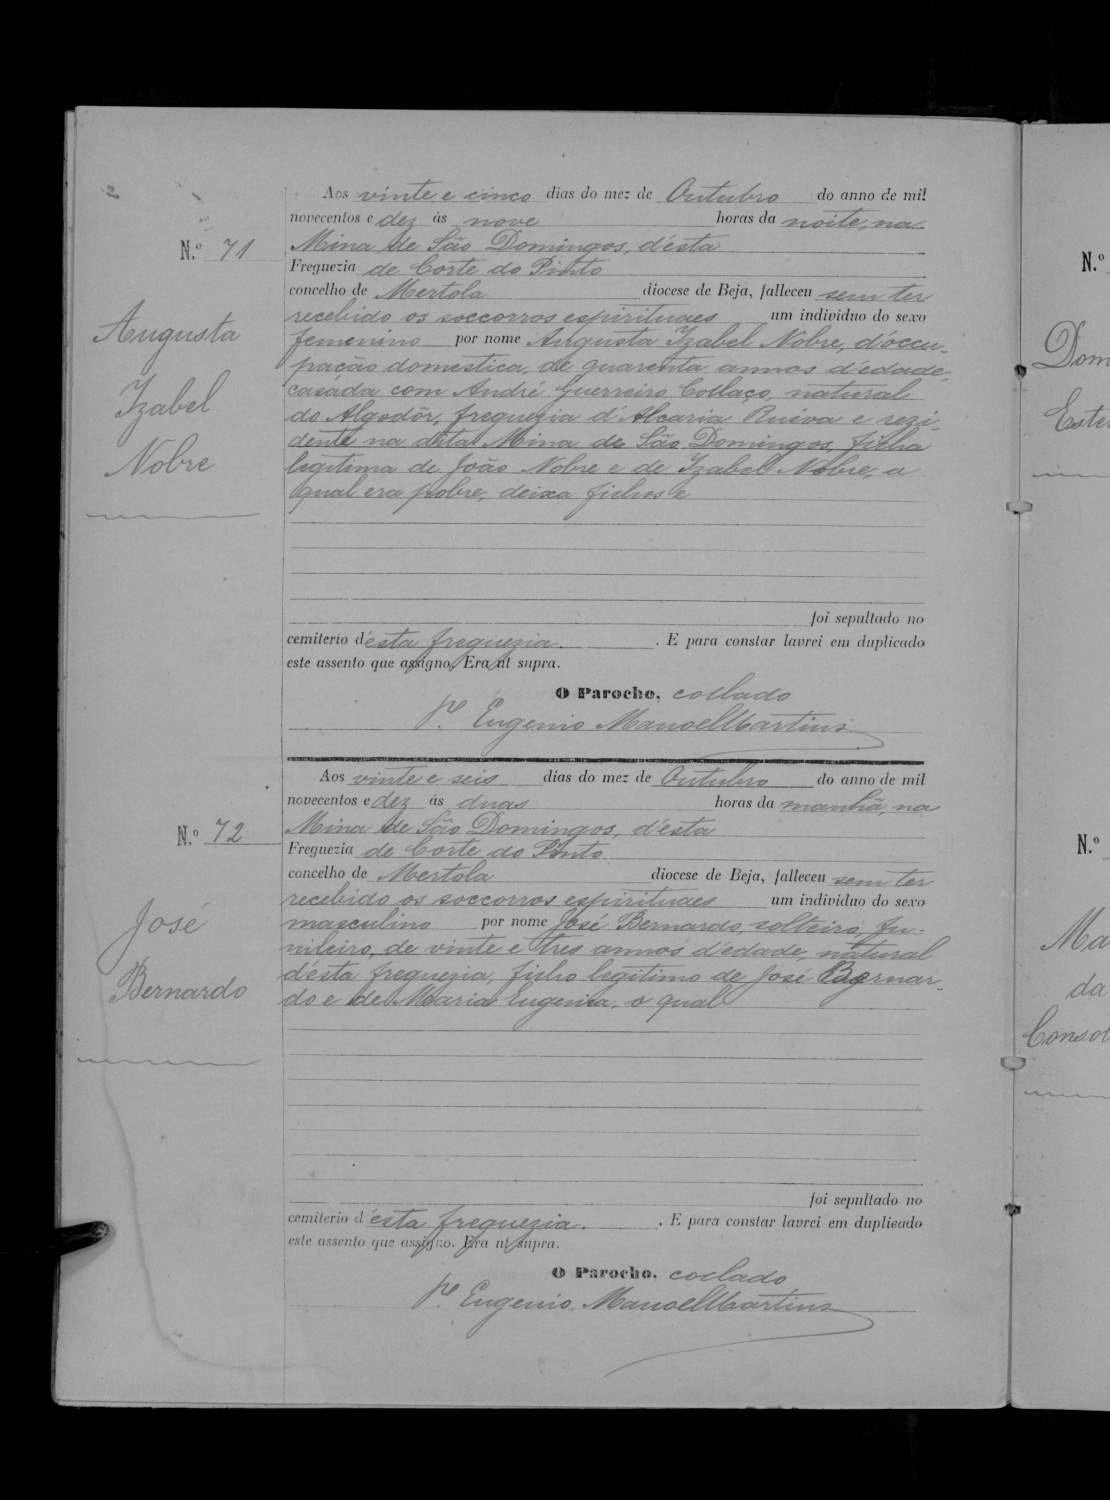 Aos vinte e cinco dias do mez de Outubro do anno de mil
novecentos e dez ás nove horas da noite, na
Mina de São Domingos, d'ésta
N.º 71
Freguezia de Corte do Pinto
concelho de Mertola diocese de Beja, falleceu sem ter
recebido os soccorros espirituaes um individuo do sexo
femenino por nome Augusta Izabel Nobre, d'óccu-
pação domestica, de quarenta annos d'edade,
casáda com André Guerreiro Collaço, natural
do Algodôr, freguezia d'Alcaria Ruiva e rezi-
dente na dita Mina de São Domingos, filha
legitima de João Nobre e de Izabel Nobre, a
qual era pobre, deixa filhos e
Augusta
Izabel
Nobre
foi sepultado no
cemiterio d'ésta freguezia. . E para constar lavrei em duplicado
este assento que assigno. Era ut supra.
O Parocho, collado
P.e Eugenio Manoel Martins
Aos vinte e seis dias do mez de Outubro do anno de mil
novecentos e dez ás duas horas da manhã, na
Mina de São Domingos, d'ésta
N.º 72
Freguezia de Corte do Pinto
concelho de Mertola diocese de Beja, falleceu sem ter
recebido os soccorros espirituaes um individuo do sexo
masculino por nome José Bernardo, solteiro, fu-
nileiro, de vinte e tres annos d'edade, natural
d'ésta freguezia, filho legitimo de José Bernar-
do e de Maria Eugenia, o qual
José
Bernardo
foi sepultado no
cemiterio d'ésta freguezia. . E para constar lavrei em duplicado
este assento que assigno. Era ut supra.
O Parocho, collado
P.e Eugenio Manoel Martins
N.º
Dom
Ester
N.º
Ma
da
Consol